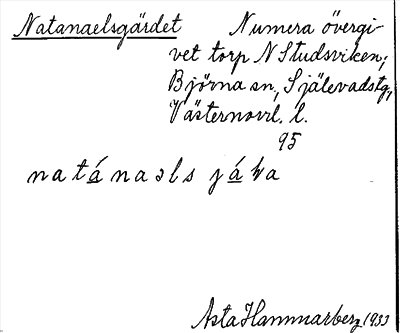 Natanaelsgärdet Numera övergi-
vet torp N Studsviken;
Björna sn, Själevadstg,
Västernorrl. l.
95
natánaəls
Asta Hammarberg 1933